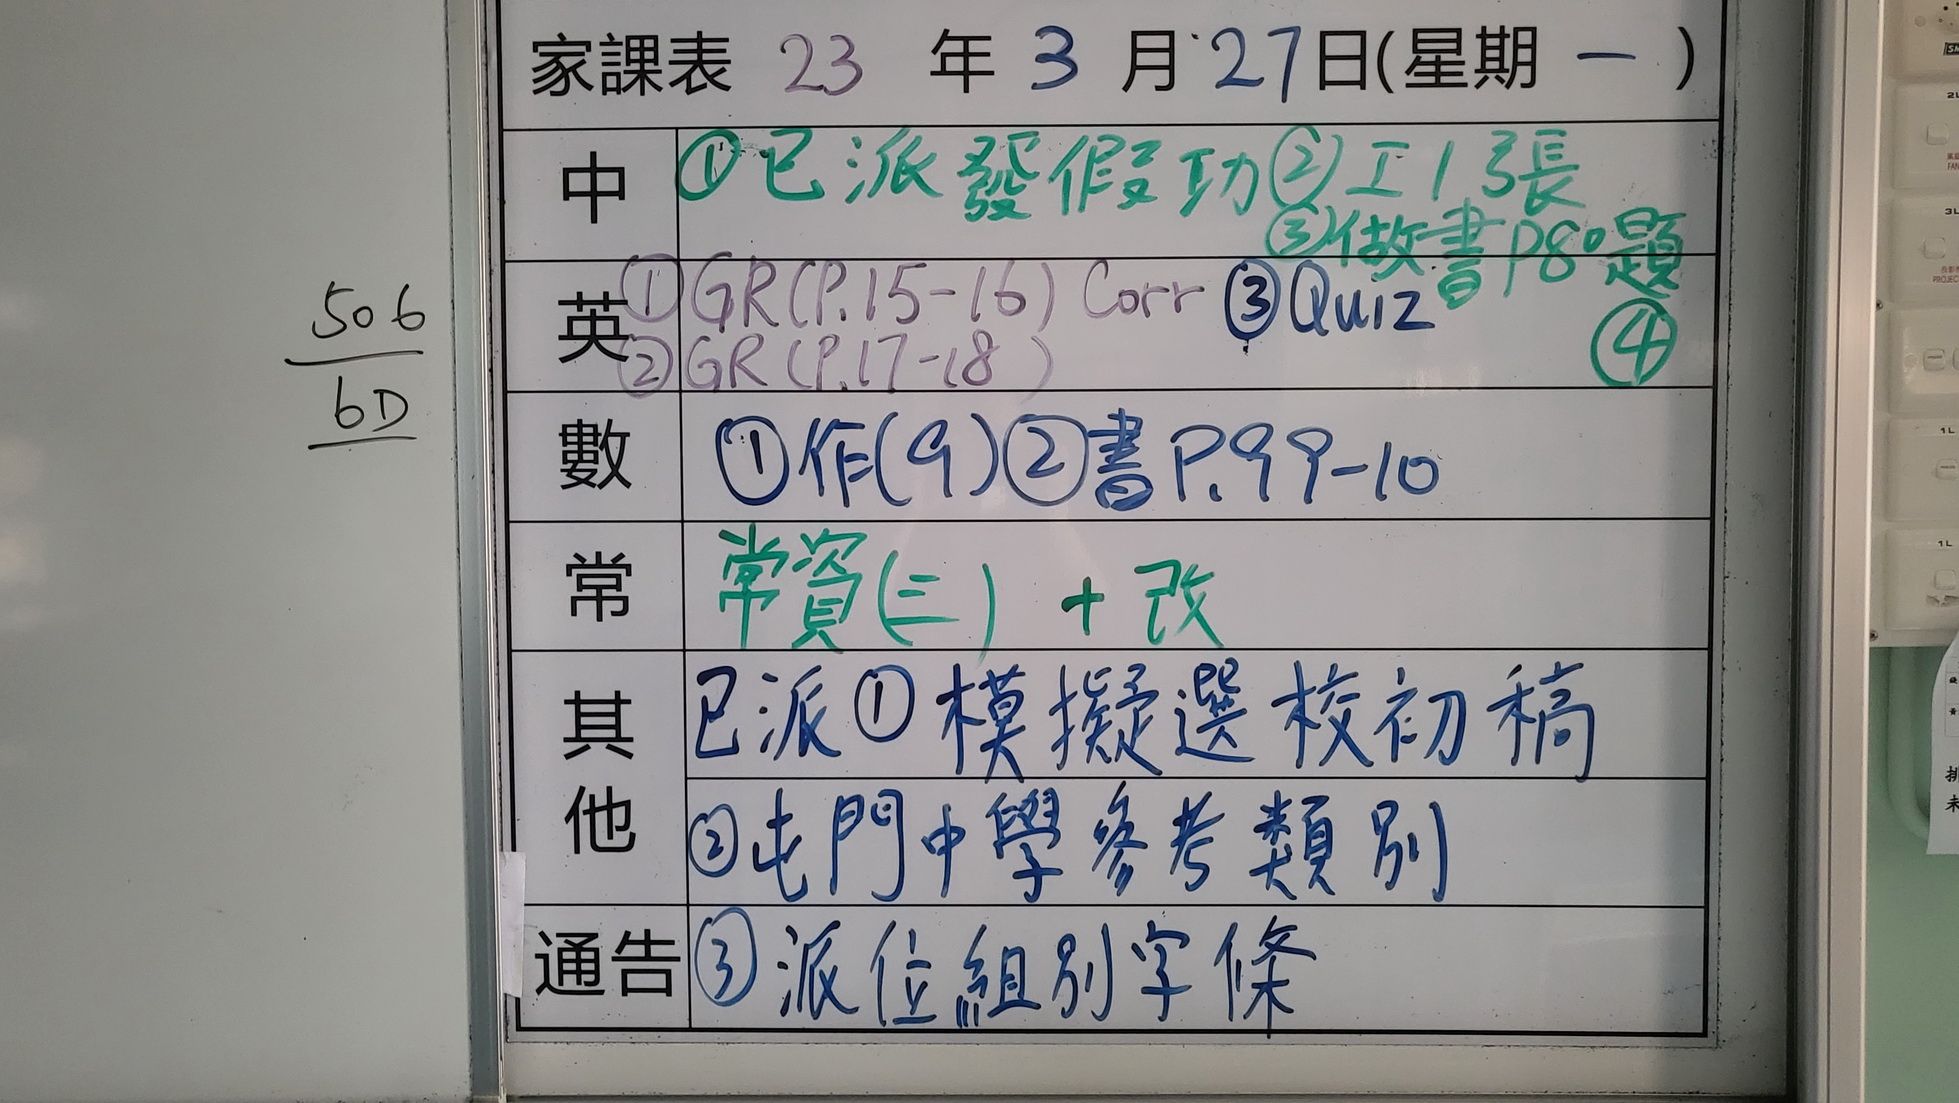 家課表 23 年 3 月 27 日(星期 一 )
中 ①已派發假功②工1 3張
③做書P80題
④
英 ①GR(P.15-16) Corr ③Quiz
②GR(P.17-18)
數 ①作(9)②書P.99-10
常 常資(三) + 改
其他 已派①模擬選校初稿
②屯門中學參考類別
通告 ③派位組別字條
506
6D